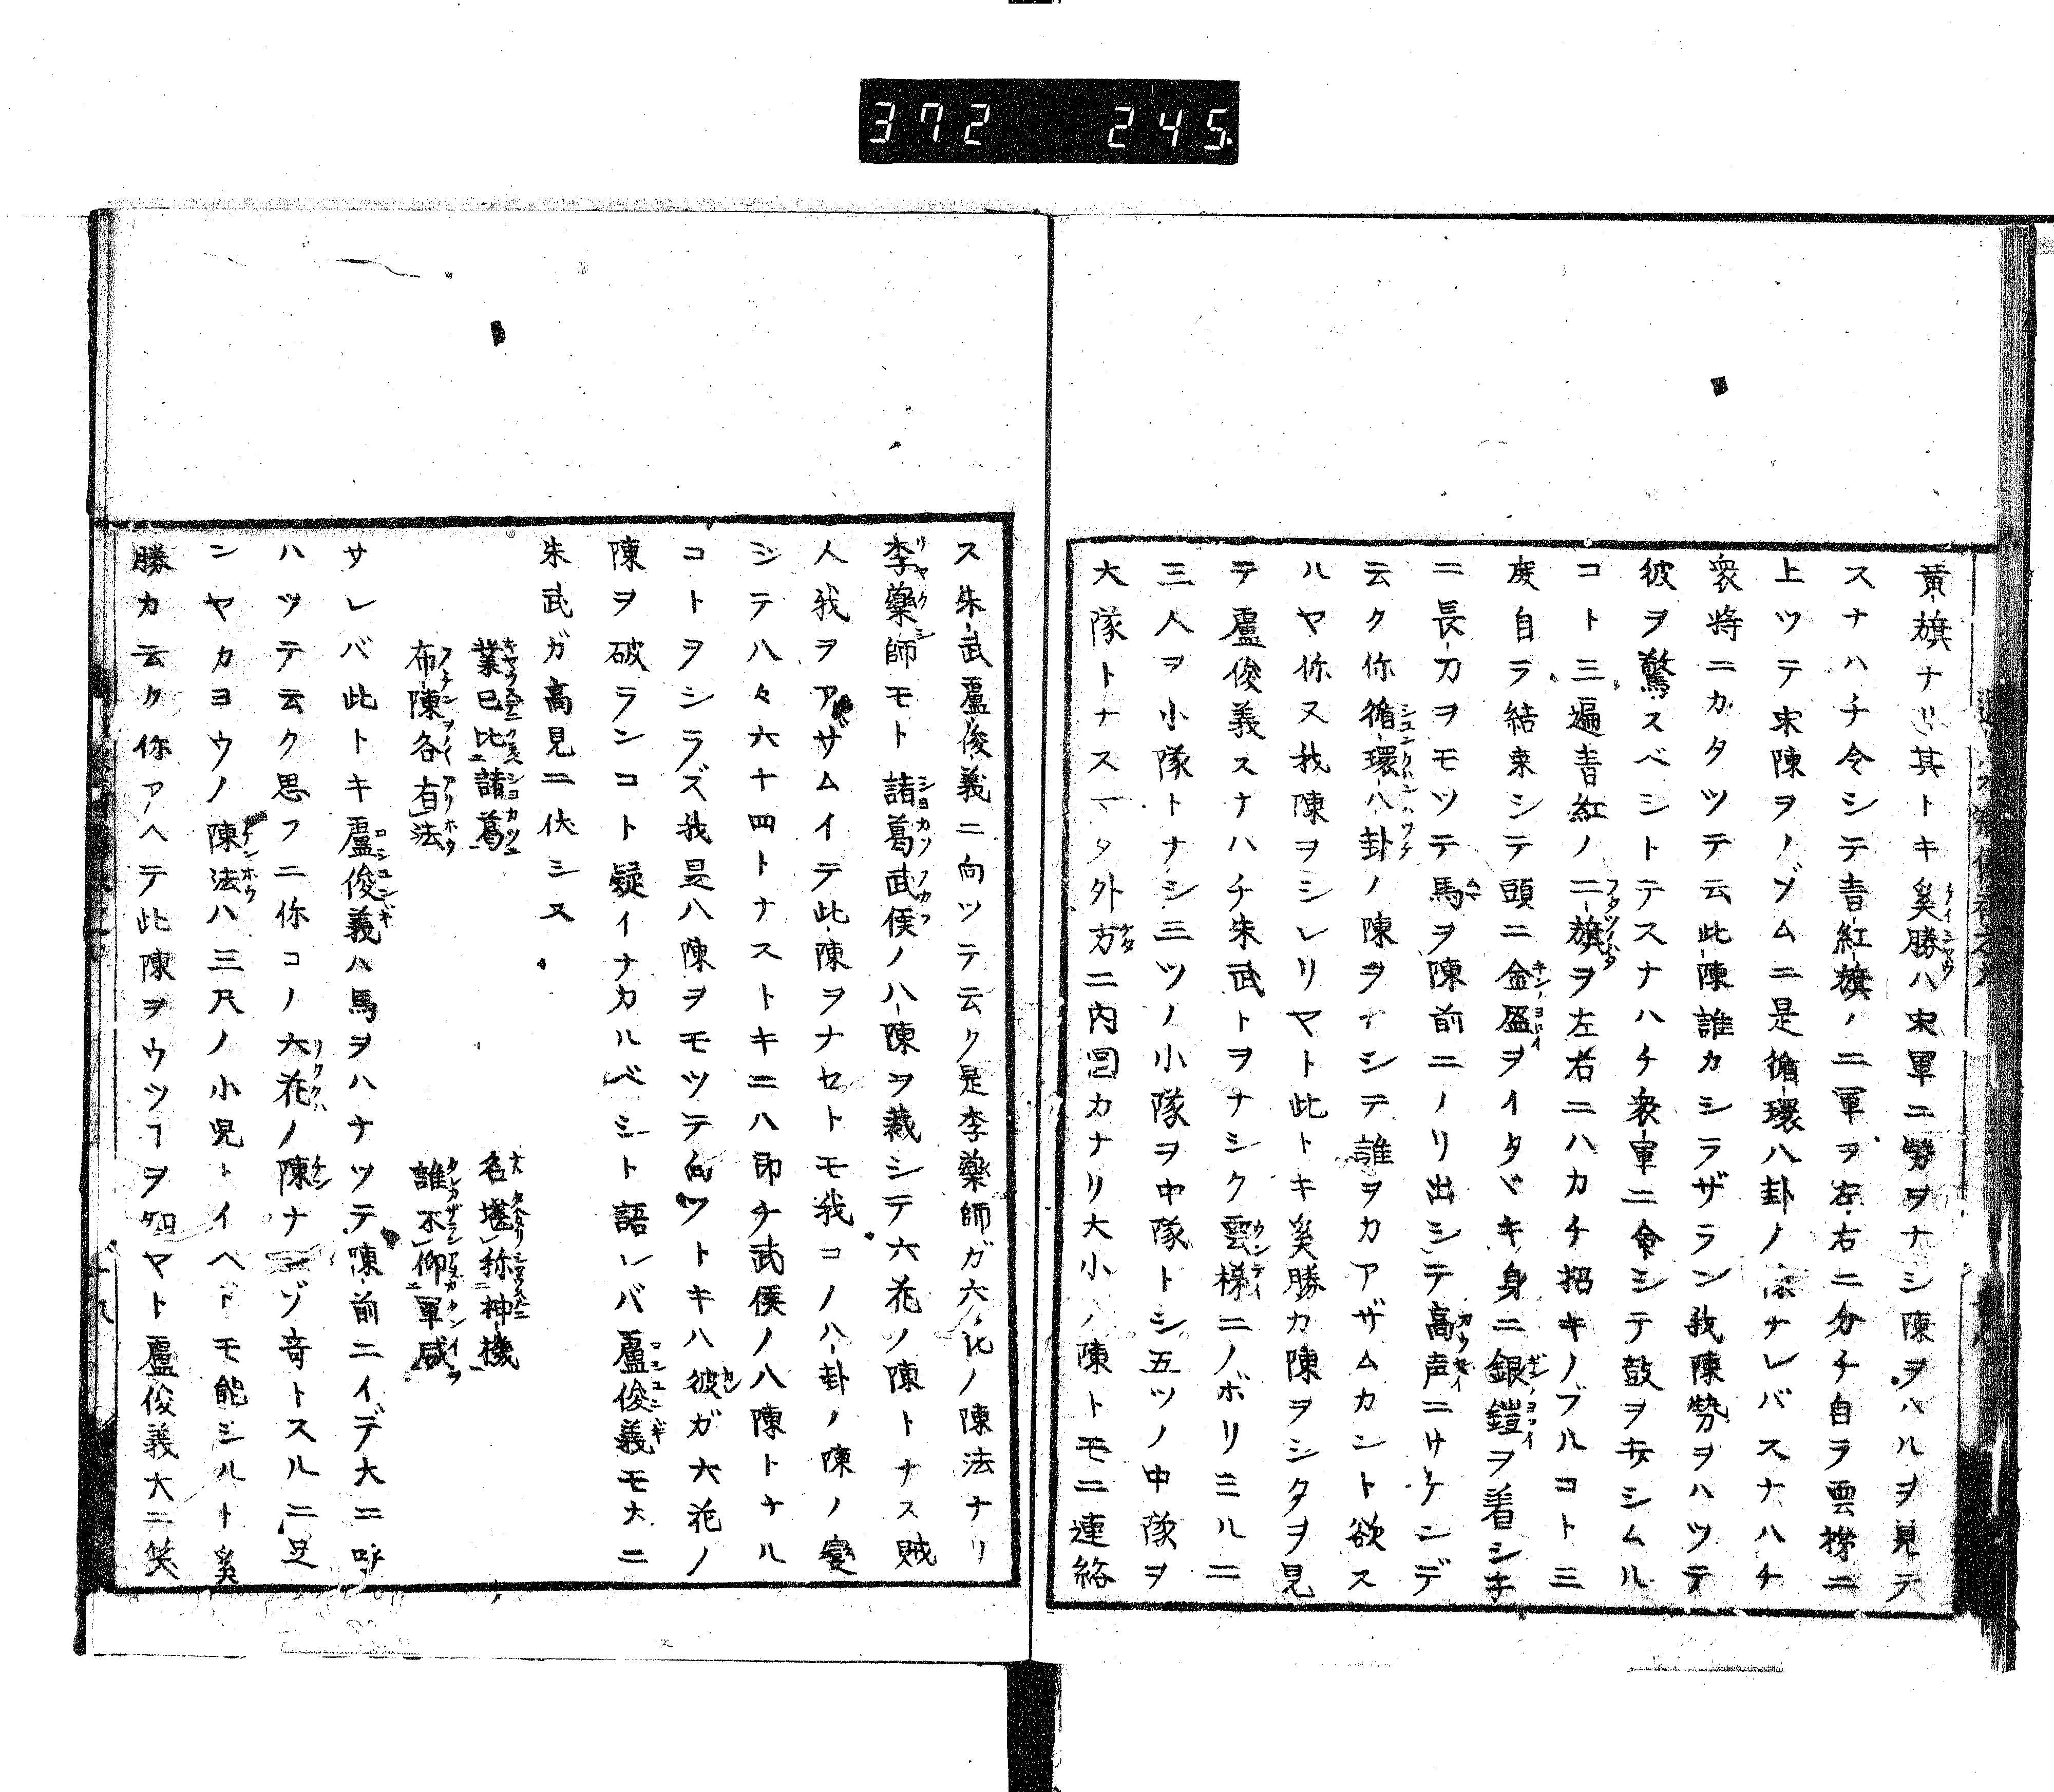 372 245
黄旗ナリ其トキ奚勝ハ宋軍ニ勞ヲナシ陳ヲハルヲ見テ
スナハチ令シテ青紅旗ノ二軍ヲ左右ニ分チ自ラ雲梯ニ
上ツテ宋陳ヲノゾムニ是循環八卦ノ陳ナレバスナハチ
衆將ニカタツテ云此陳誰カシラザラン我陳勢ヲハツテ
彼ヲ驚スベシトテスナハチ衆軍ニ命シテ鼓ヲ打シムル
コト三遍青紅ノ二旗ヲ左右ニハカチ招キノブルコト三
度自ラ結束シテ頭ニ金盔ヲイタヾキ身ニ銀鎧ヲ着シ手
ニ長刀ヲモツテ馬ヲ陳前ニノリ出シテ高声ニサケンデ
云ク你循環八卦ノ陳ヲナシテ誰ヲカアザムカント欲ス
ルヤ你ス我陳ヲシレリマト此トキ奚勝カ陳ヲシタヲ見
テ盧俊義スナハチ朱武トヲナシク雲梯ニノボリミルニ
三人ヲ小隊トナシ三ツノ小隊ヲ中隊トシ五ツノ中隊ヲ
大隊トナスマタ外方ニ内圓カナリ大小ノ陳トモニ連絡
ス朱武盧俊義ニ向ツテ云ク是李藥師ガ六花ノ陳法ナリ
李藥師モト諸葛武侯ノ八陳ヲ裁シテ六花ノ陳トナス賊
人我ヲアザムイテ此陳ヲナセトモ我コノ八卦ノ陳ノ變
シテ八々六十四トナストキニハ即チ武侯ノ八陳トナル
コトヲシラズ我是八陳ヲモツテ向フトキハ彼ガ六花ノ
陳ヲ破ランコト疑イナカルベシト語レバ盧俊義モ大ニ
朱武ガ高見ニ伏シヌ
業已比諸葛 名堪称神機
布陳各有法 誰不仰軍威
サレバ此トキ盧俊義ハ馬ヲハナツテ陳前ニイデ大ニ呼
ハツテ云ク思フニ你コノ六花ノ陳ナンゾ奇トスルニ足
ンヤカヨウノ陳法ハ三尺ノ小児トイヘトモ能シルト奚
勝カ云ク你アヘテ此陳ヲウツヿヲ知ヤト盧俊義大ニ笑